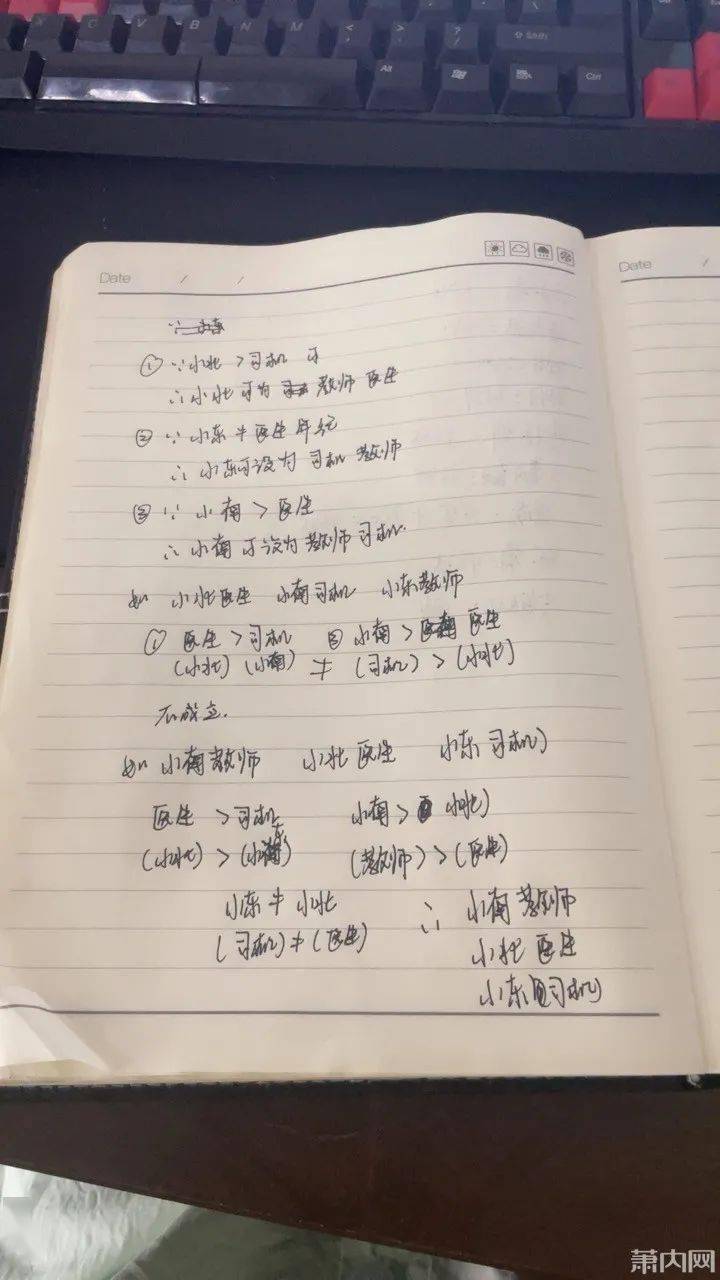 B N M < > ? ⇧ Shift
Alt Ctrl
Date / /
Date /
① ∵小北 > 司机
∴小北可为 教师 医生
② ∵小东 ≠ 医生年纪
∴小东可设为 司机 教师
③ ∵ 小南 > 医生
∴小南可设为教师司机
如 小北医生 小南司机 小东教师
① 医生 > 司机 ③ 小南 > 医生
(小北) (小南) ≠ (司机) > (小北)
不成立.
如 小南教师 小北医生 小东司机
医生 > 司机 小南 > 小北
(小北) > (小东) (教师) > (医生)
小东 ≠ 小北 ∴ 小南 教师
(司机) ≠ (医生) 小北 医生
小东 司机
萧内网